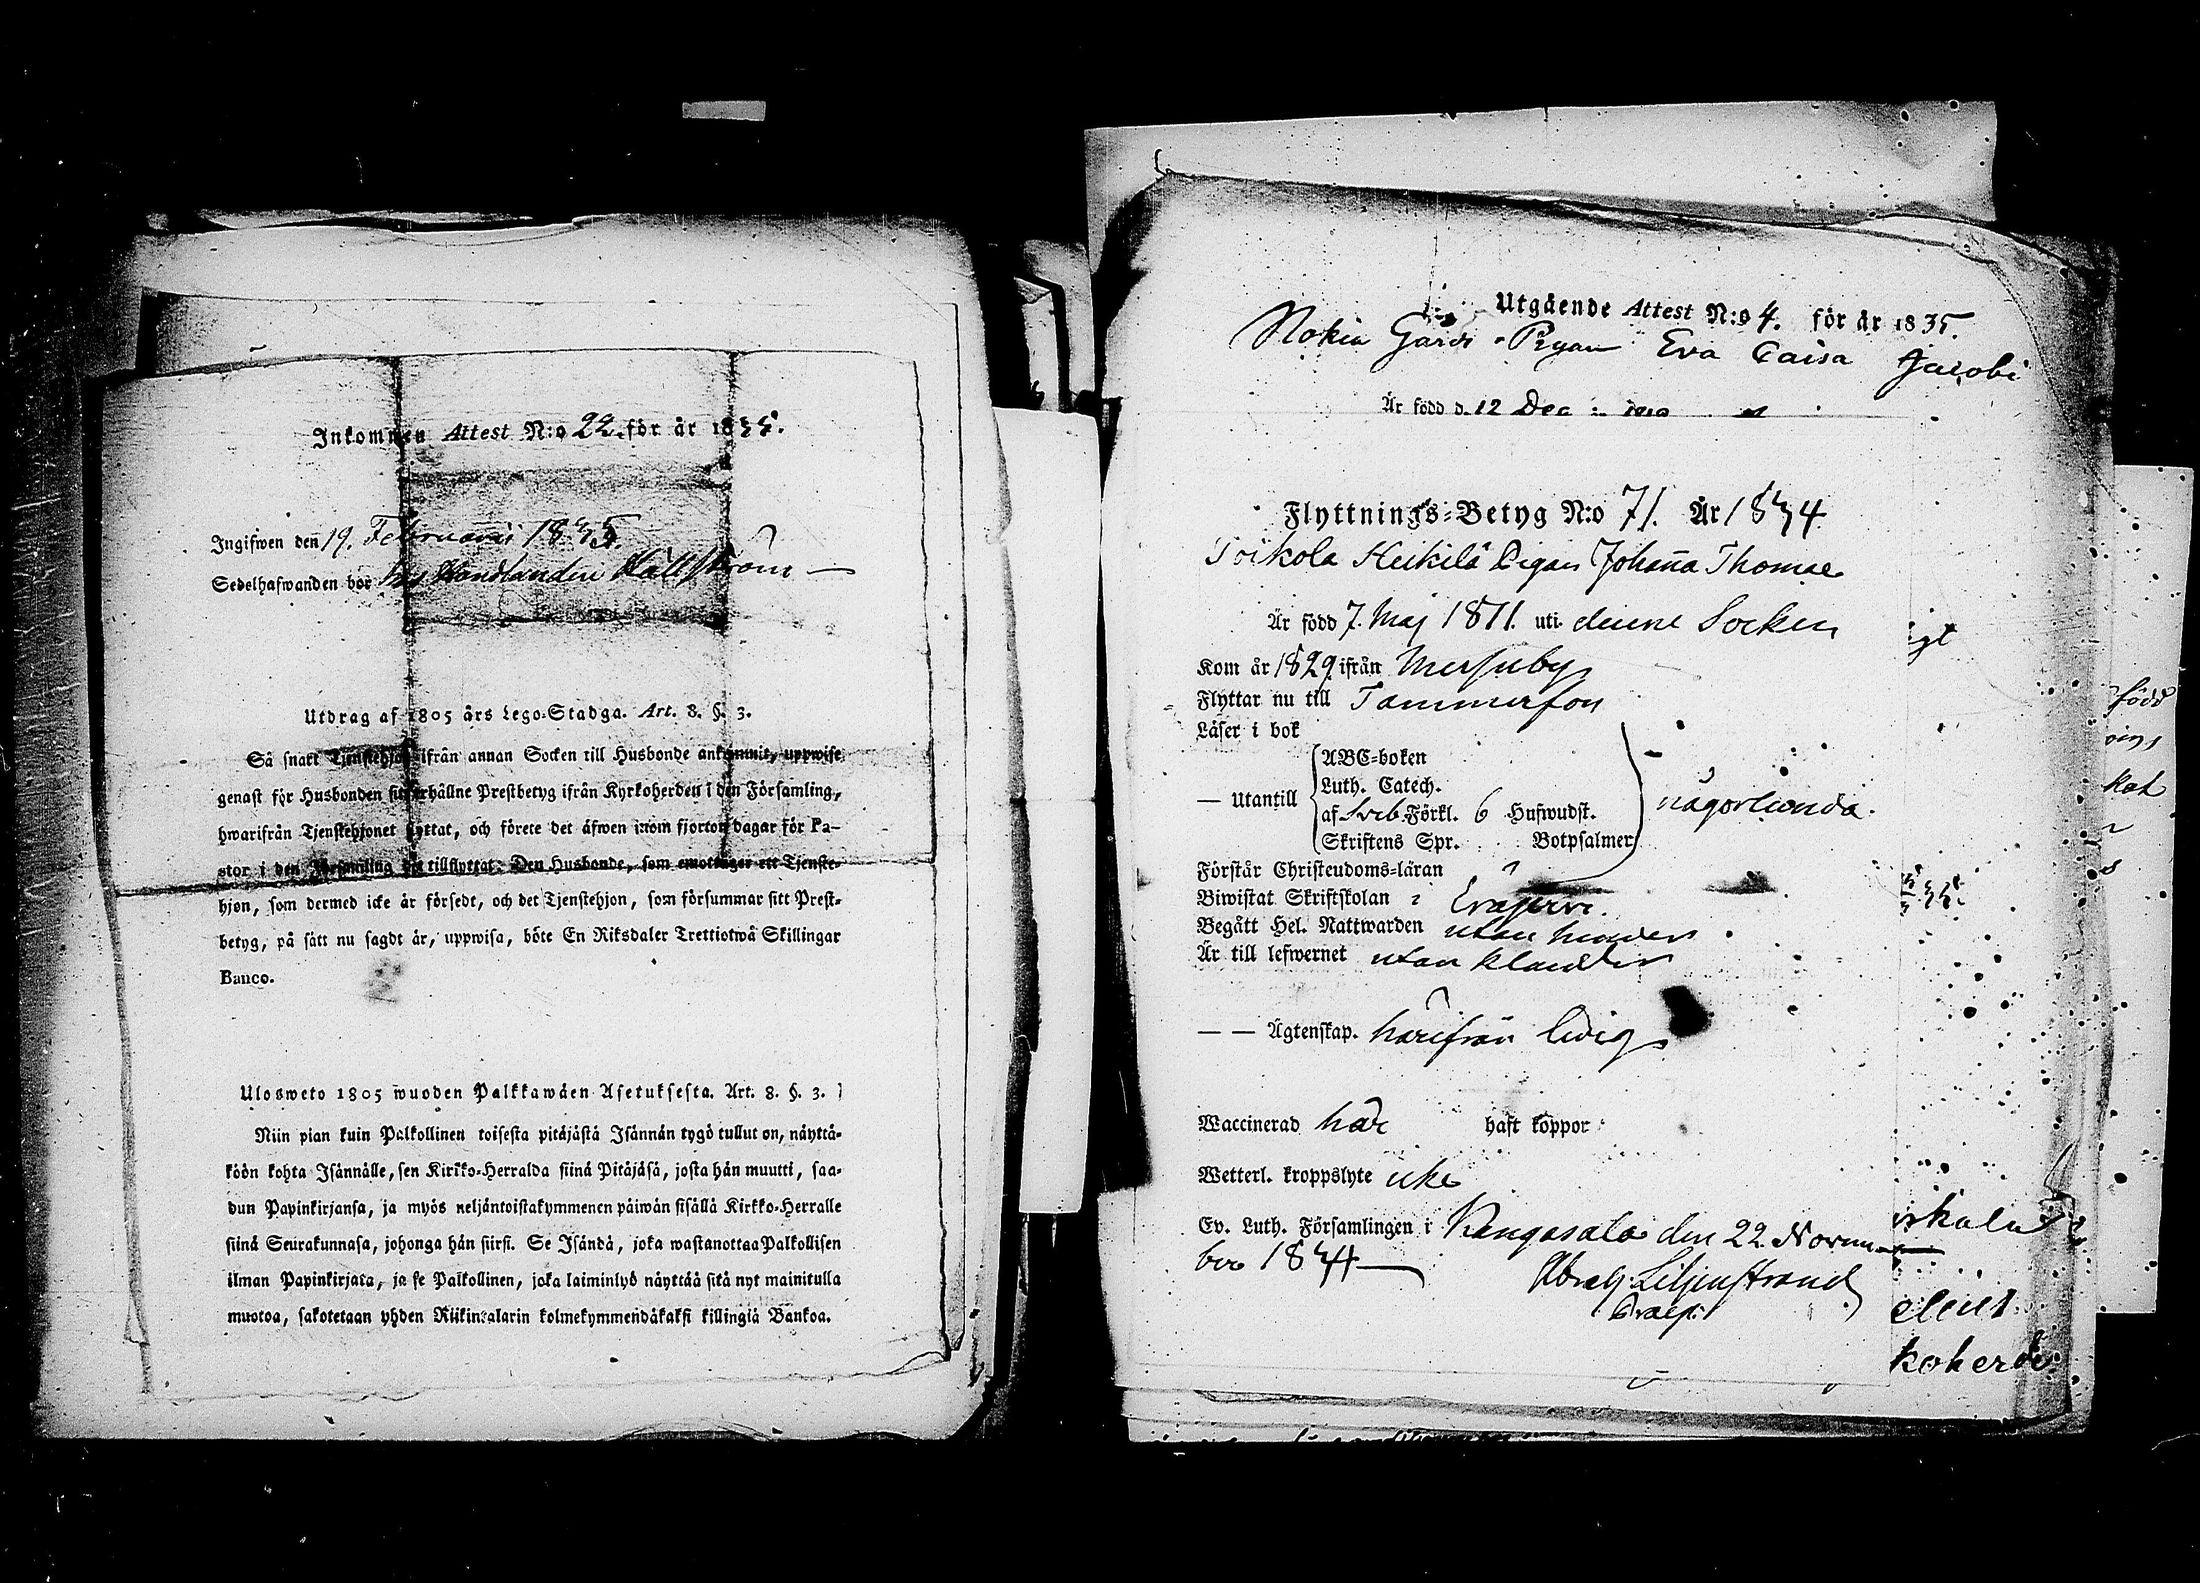 Inkommen Attest N:o 22. för år 1835.
Ingifwen den 19. Februarii 1835.
Sedelhafwanden bor hos Handlanden Hällström
Utdrag af 1805 års Lego-Stadga. Art. 8. §. 3.
Så snart Tjenstehjon ifrån annan Socken till Husbonde ankommit, uppwise
genast för Husbonden sitt erhållne Prestbetyg ifrån Kyrkoherden i den Församling,
hwarifrån Tjenstehjonet flyttat, och förete det äfwen inom fjorton dagar för Pa-
stor i den Församling dit tillflyttat. Den Husbonde, som emottager ett Tjenste-
hjon, som dermed icke är försedt, och det Tjenstehjon, som försummar sitt Prest-
betyg, på sätt nu sagdt är, uppwisa, böte En Riksdaler Trettiotwå Skillingar
Banco.
Ulosweto 1805 wuoden Palkkawäen Asetuksesta. Art. 8. §. 3.
Niin pian kuin Palkollinen toisesta pitäjästä Isännän tygö tullut on, näyttä-
köön kohta Isännälle, sen Kirkko-Herralda siinä Pitäjäsä, josta hän muutti, saa-
dun Papinkirjansa, ja myös neljäntoistakymmenen päiwän sisällä Kirkko-Herralle
siinä Seurakunnasa, johonga hän siirsi. Se Isändä, joka wastanottaa Palkollisen
ilman Papinkirjata, ja se Palkollinen, joka laiminlyö näyttää sitä nyt mainitulla
muotoa, sakotetaan yhden Riikintalarin kolmekymmendäkaksi killingiä Bankoa.
Utgående Attest N:o 4. för år 1835.
Nokia Gårds Pigan Eva Caisa Jacobi
Är född d. 12 Dec:
Flyttnings-Betyg N:o 71. År 1834
Toikola Heikilä Pigan Johanna Thomae
Är född 7. Maj 1811. uti denne Socken
Kom år 1829 ifrån
Flyttar nu till Tammerfors
Läser i bok
ABC-boken
Luth. Catech.
— Utantill af Sveb. Förkl. 6 Hufwudst. någorlunda.
Skriftens Spr. Botpsalmer
Förstår Christendoms-läran
Biwistat Skriftskolan i
Begått Hel. Nattwarden utan hinder
Är till lefwernet utan klander
— — Ägtenskap. härifrån ledig
Waccinerad har haft koppor
Wetterl. kroppslyte icke
Ev. Luth. Församlingen i Kangasala den 22 Novem-
ber 1834
Abrah. Liljenstrand
igt
född
koherde